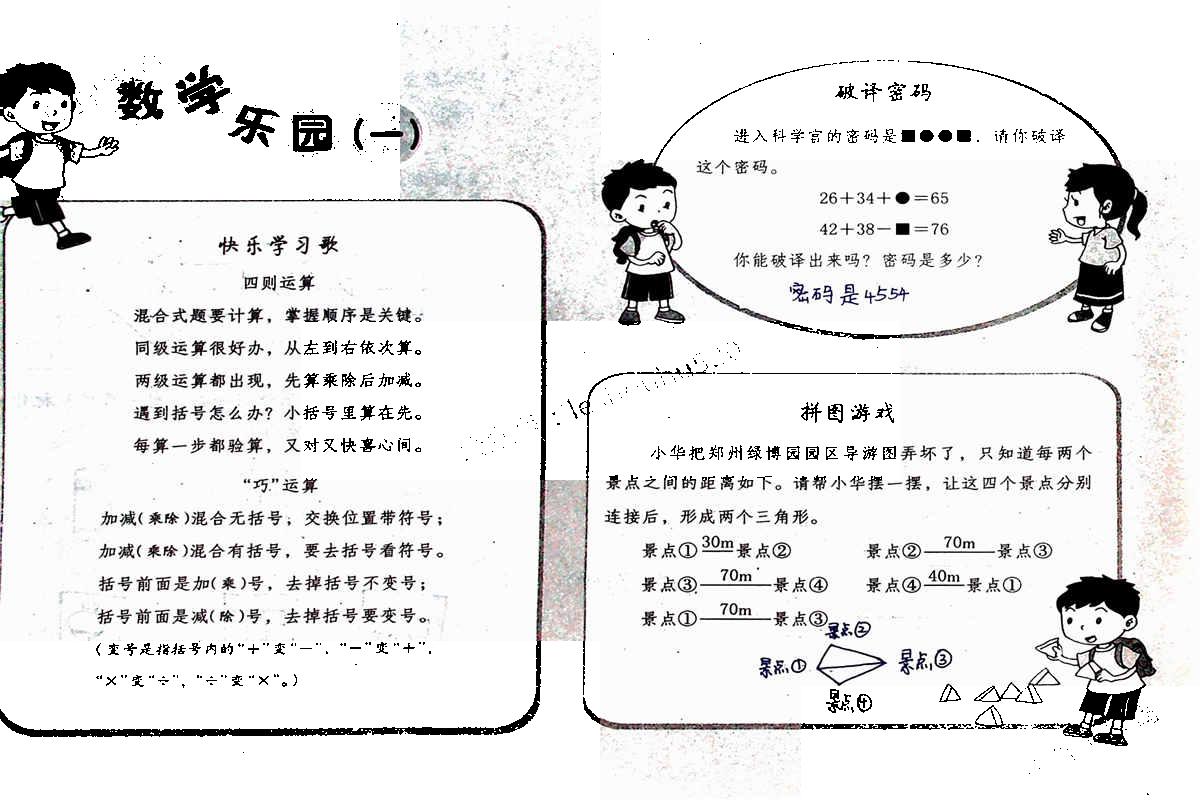 数学乐园(一)
快乐学习歌
四则运算
混合式题要计算，掌握顺序是关键。
同级运算很好办，从左到右依次算。
两级运算都出现，先算乘除后加减。
遇到括号怎么办？小括号里算在先。
每算一步都验算，又对又快喜心间。
“巧”运算
加减(乘除)混合无括号，交换位置带符号；
加减(乘除)混合有括号，要去括号看符号。
括号前面是加(乘)号，去掉括号不变号；
括号前面是减(除)号，去掉括号要变号。
(变号是指括号内的“+”变“－”，“－”变“+”，
“×”变“÷”，“÷”变“×”。)
破译密码
进入科学宫的密码是■●●■，请你破译
这个密码。
26+34+●=65
42+38－■=76
你能破译出来吗？密码是多少？
密码是4554
拼图游戏
小华把郑州绿博园园区导游图弄坏了，只知道每两个
景点之间的距离如下。请帮小华摆一摆，让这四个景点分别
连接后，形成两个三角形。
景点① 30m 景点② 景点② 70m 景点③
景点③ 70m 景点④ 景点④ 40m 景点①
景点① 70m 景点③
景点②
景点① 景点③
景点④